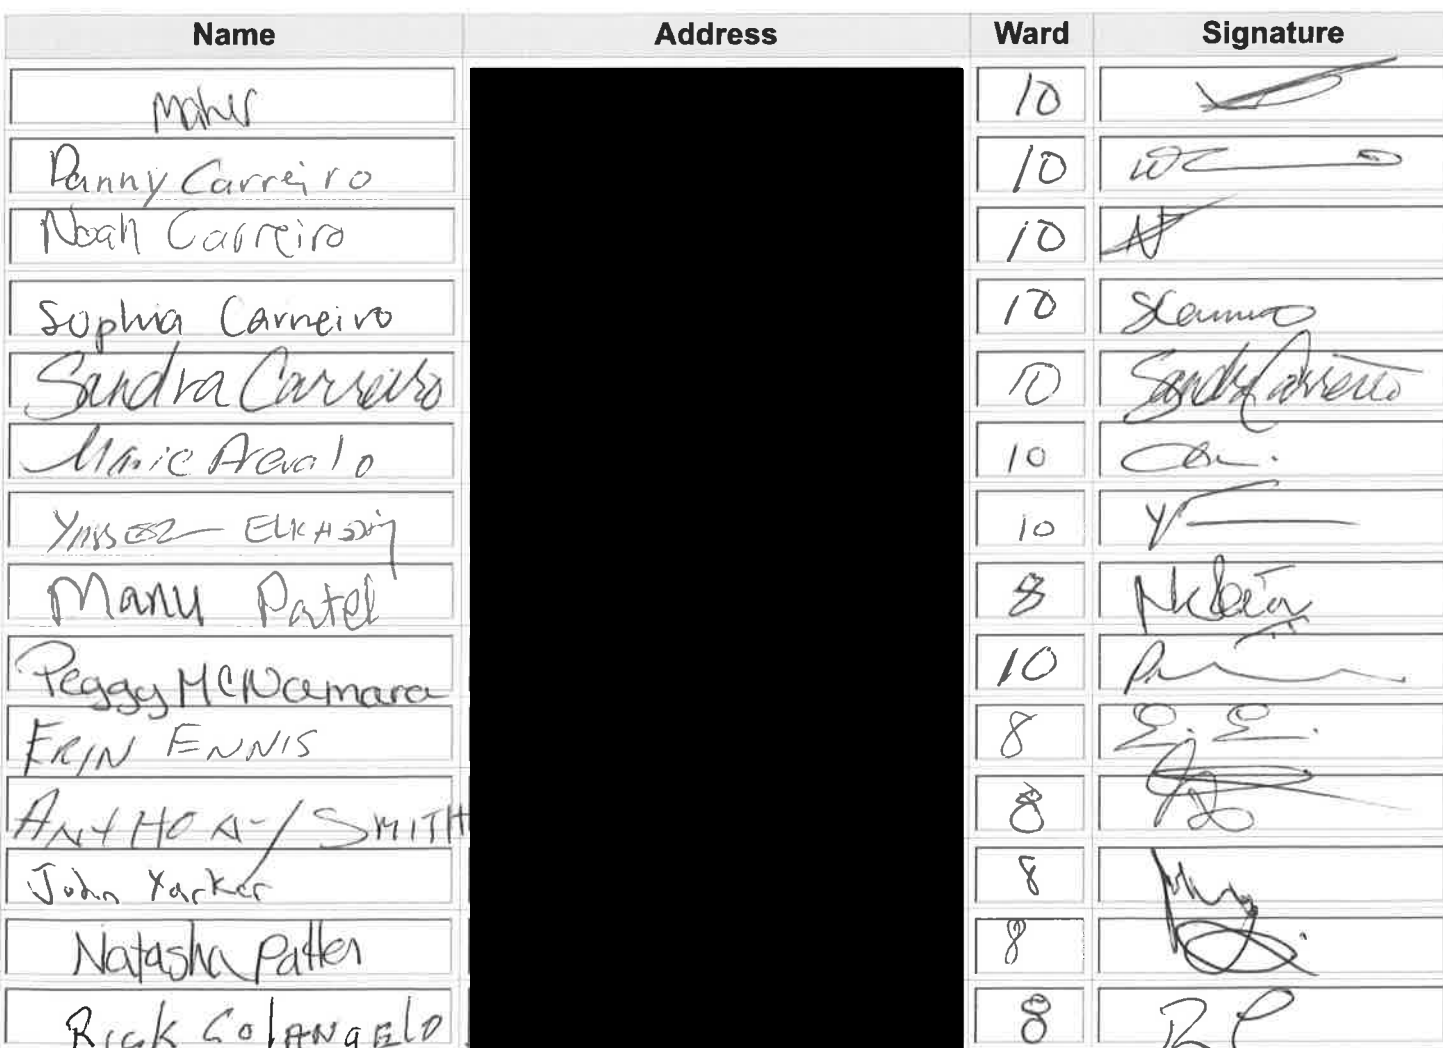 Name Address Ward Signature
Maher 10
Danny Carreiro 10
Noah Carreiro 10
Sophia Carneiro 10
Sandra Carreiro 10 Sandra Carreiro
Marie Arevalo 10
10
Manu Patel 8
Peggy McNamara 10
ERIN ENNIS 8 E. E.
ANTHONY SMITH 8
John Yarker 8
Natasha Patten 8
RICK COLANGELO 8 RC